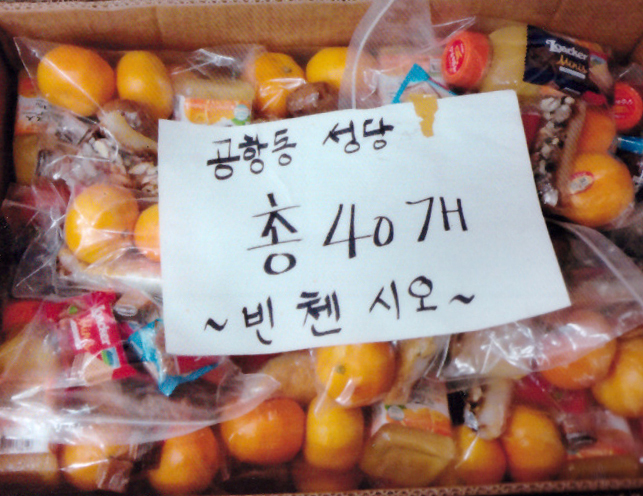 공항동 성당
총 40개
~빈첸시오~
Loacker
Minis